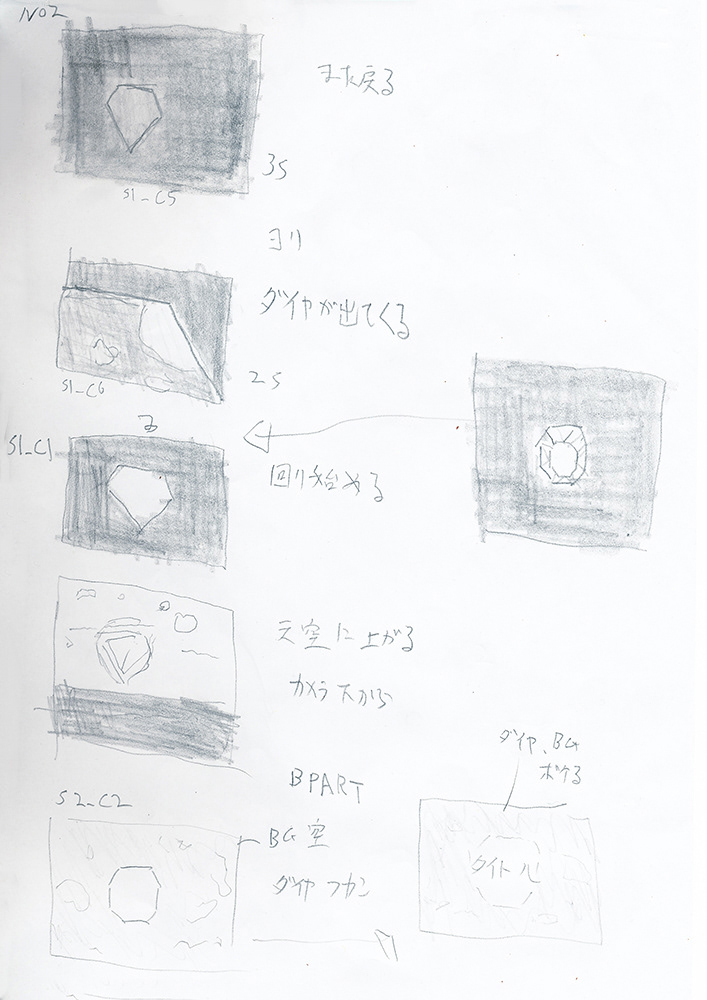 NO2
また戻る
3S
S1_C5
ヨリ
ダイヤが出てくる
2S
S1_C6
S1_C1
回り始める
天空に上がる
カメラ下から
BPART
S2_C2
BG空
ダイヤフカン
ダイヤ、BG
ボケる
タイトル